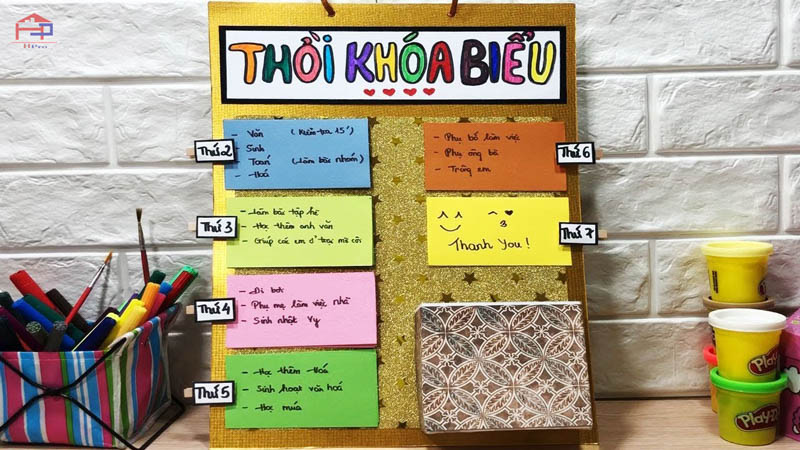 THỜI KHÓA BIỂU
Thứ 2
- Văn (Kiểm tra 15')
- Sinh
- Toán (Làm bài nhóm)
- Hoá
Thứ 3
- Làm bài tập hè
- Học thêm anh văn
- Giúp các em ở trại mồ côi
Thứ 4
- Đi bơi
- Phụ mẹ làm việc nhà
- Sinh nhật Vy
Thứ 5
- Học thêm Hoá
- Sinh hoạt văn hoá
- Học múa
Thứ 6
- Phụ bố làm việc
- Phụ ông bà
- Trông em
Thứ 7
Thank You!
Play-D
Play-D